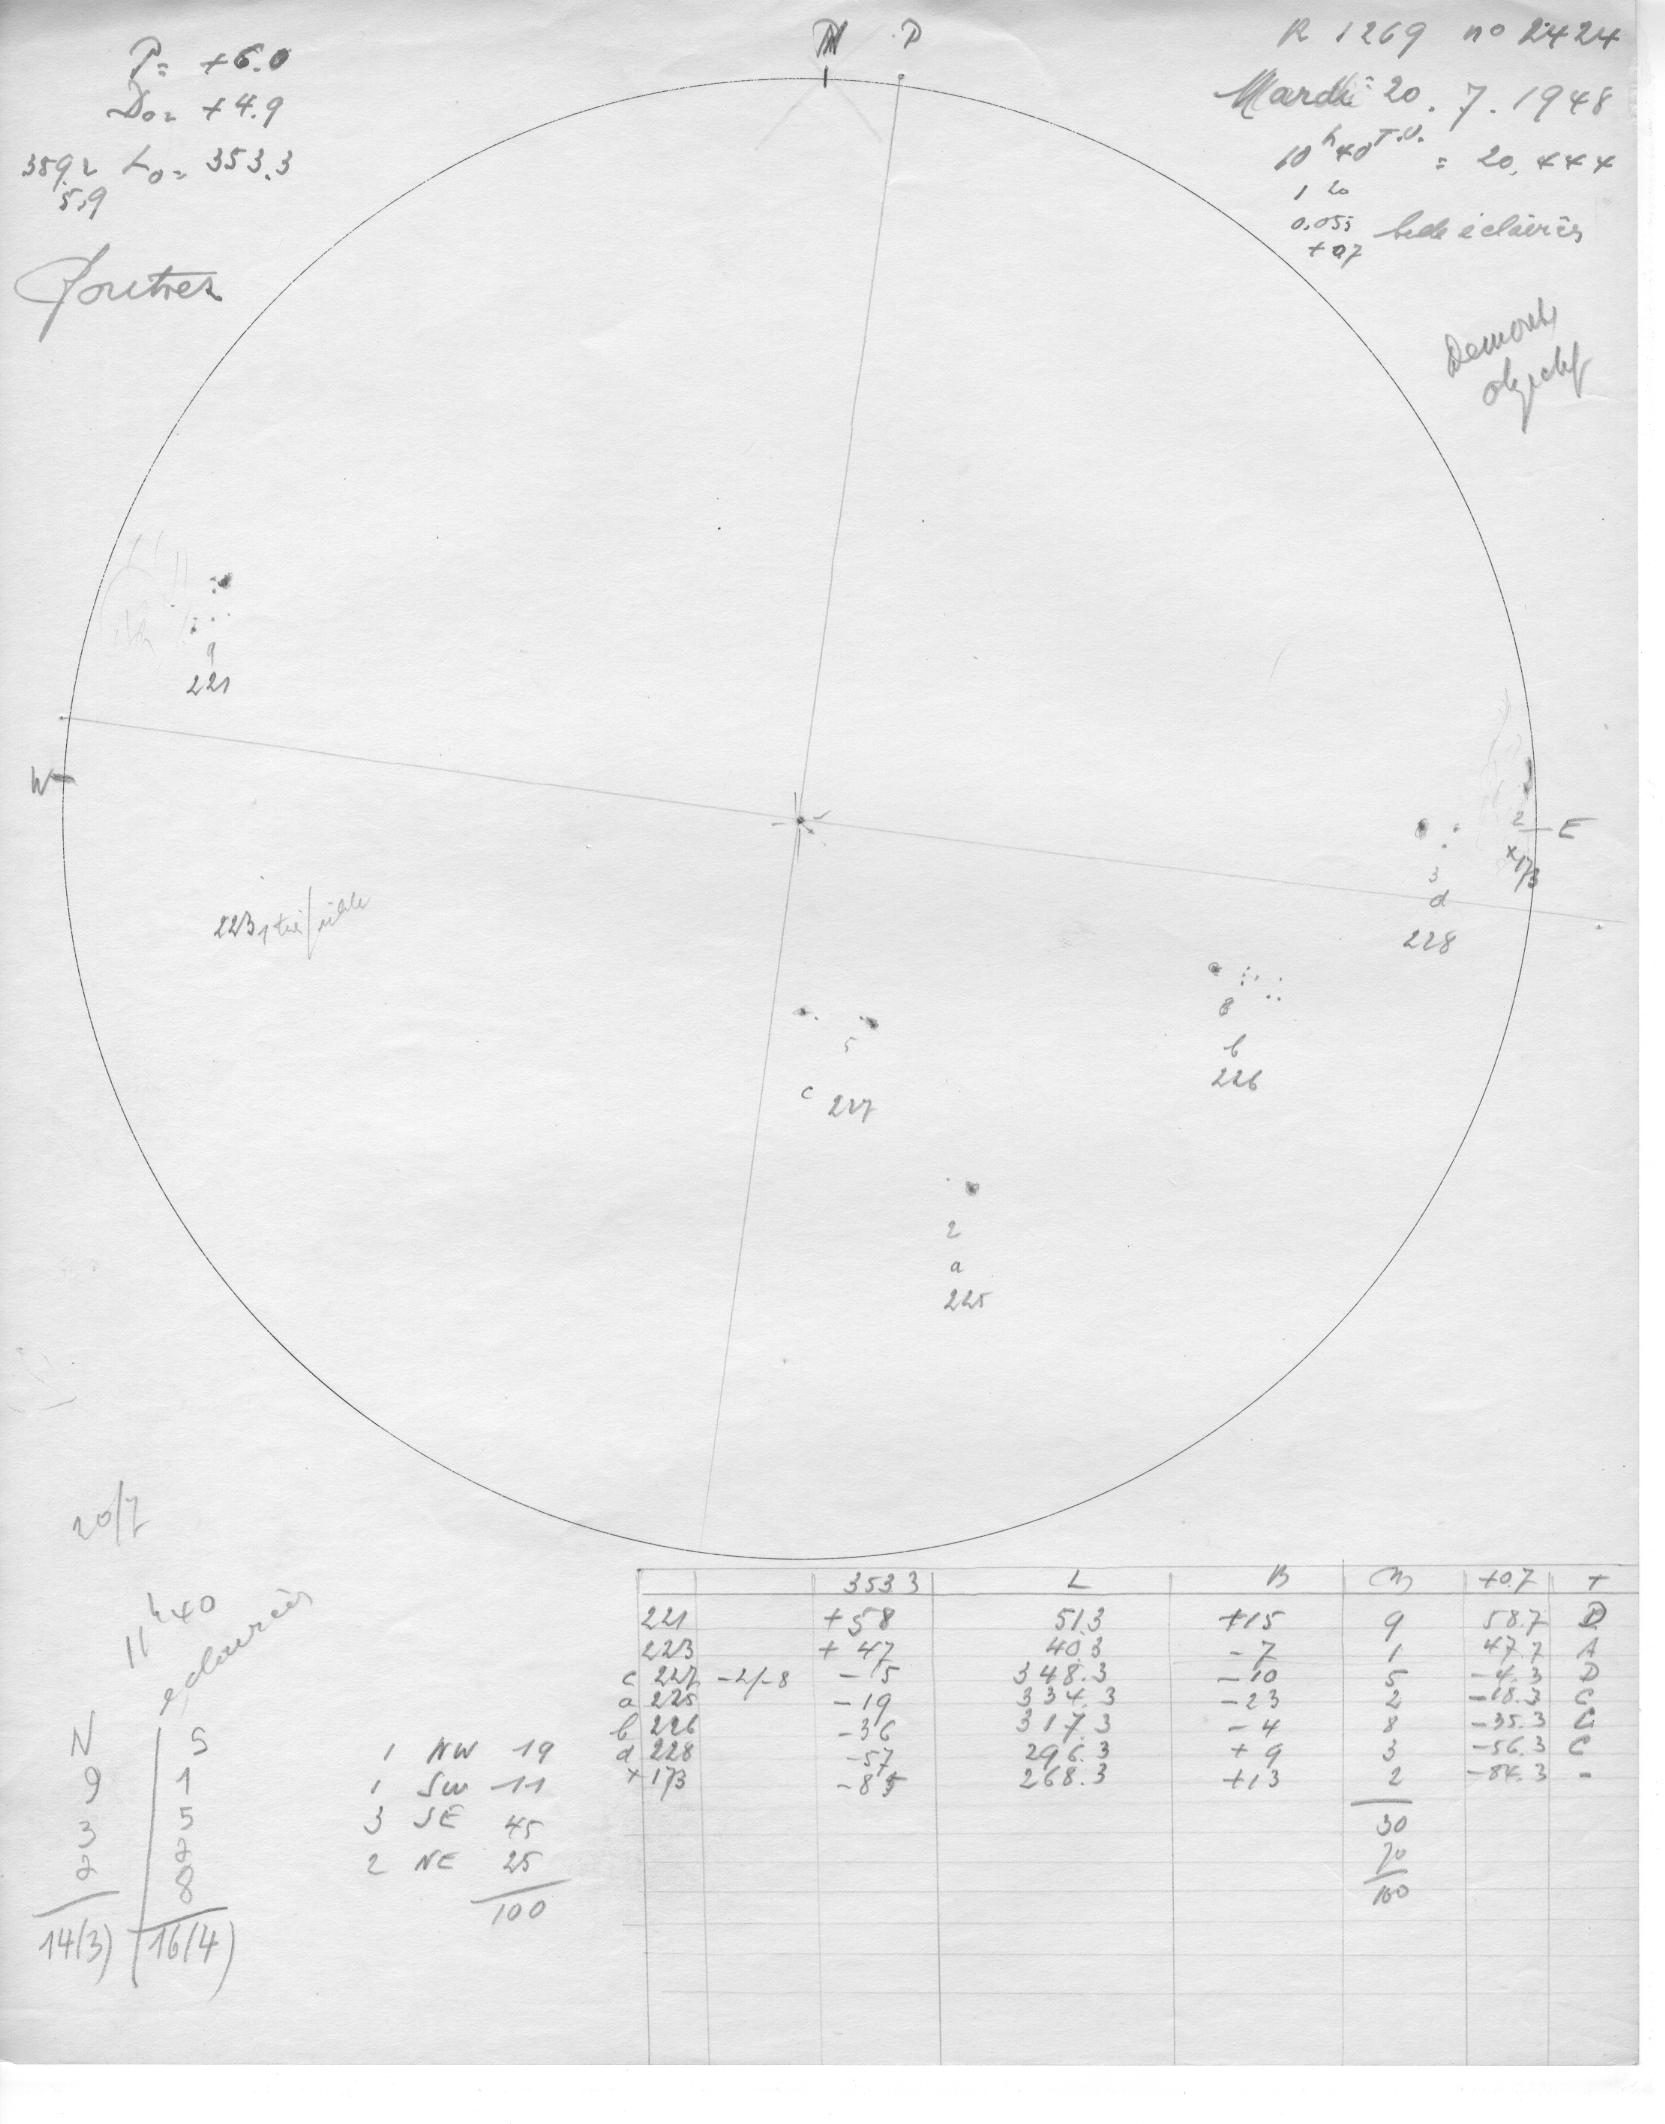 N P
R 1269 no 2424
P = +6.0
Do = +4.9
359.2 Lo = 353.3
5.9
Mardi 20.7.1948
10h40 T.U. = 20,444
1 20
0.055
+0.7
221
9
W
E
2
×173
3
d
228
223 1
8
b
226
5
c 227
2
a
225
20/7
11h40
éclaircies
N S
9 1
3 5
2 2
8
14(3) 16(4)
1 NW 19
1 SW 11
3 SE 45
2 NE 25
100
353 3 L B +0.7 T
221 +58 51.3 +15 9 58.7 D
223 +47 40.3 -7 1 47.7 A
c 227 -2/-8 -5 348.3 -10 5 -4.3 D
a 225 -19 334.3 -23 2 -18.3 C
b 226 -36 317.3 -4 8 -35.3 C
d 228 -57 296.3 +9 3 -56.3 C
× 173 -85 268.3 +13 2 -84.3 -
30
70
100